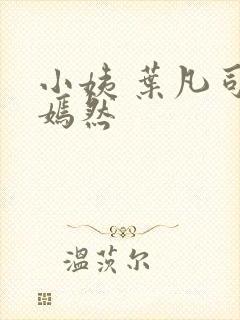 小姨 葉凡司
嫣然
溫茨尔